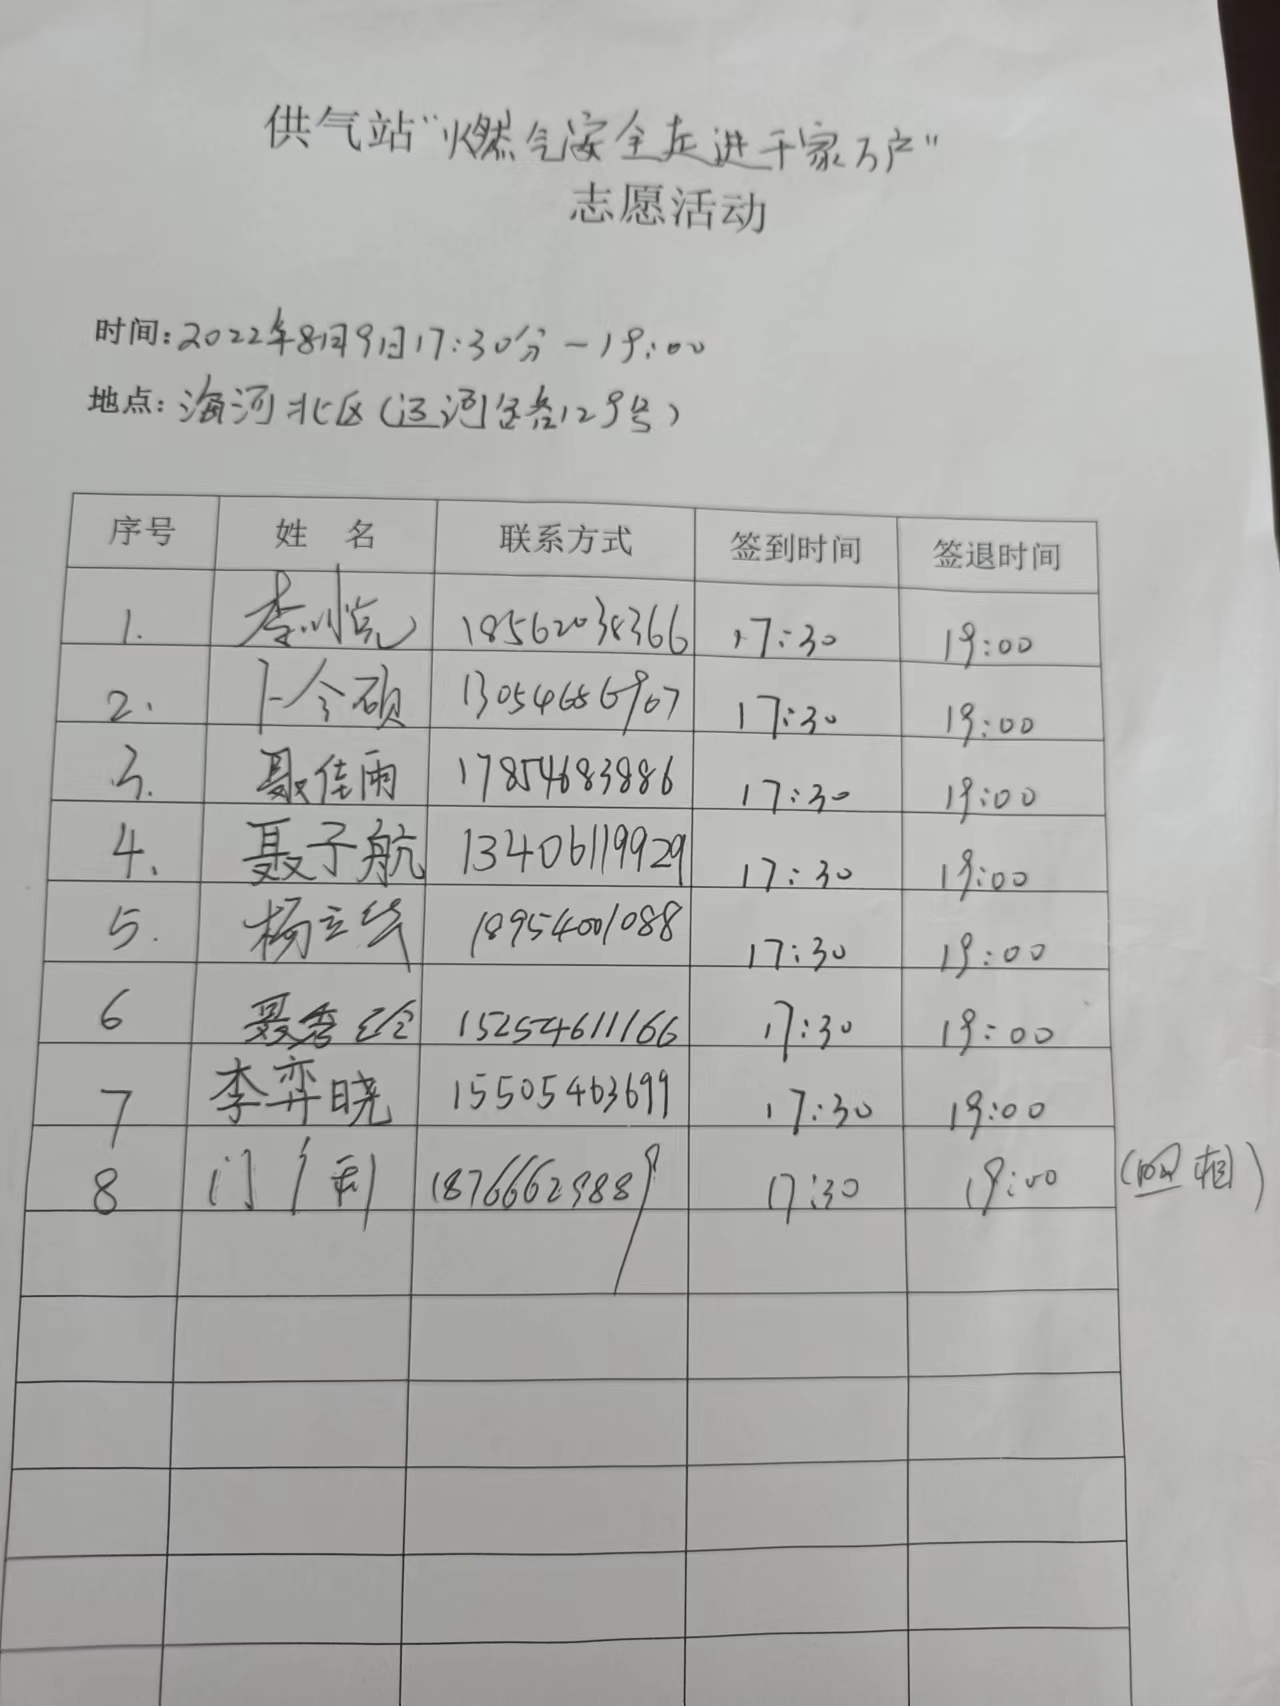 供气站“燃气安全走进千家万户”
志愿活动
时间:2022年8月9日17:30分-19:00
地点:海河北区(运河宝岛129号)
序号 姓 名 联系方式 签到时间 签退时间
1. 李 18562038366 17:30 19:00
2. 卜令硕 13054686967 17:30 19:00
3. 聂佳雨 17854683886 17:30 19:00
4. 聂子航 13406119929 17:30 19:00
5. 杨立华 18954001088 17:30 19:00
6 聂秀玲 15254611166 17:30 19:00
7 李弈晓 15505463699 17:30 19:00
8 门 利 18766629889 17:30 19:00 (照相)